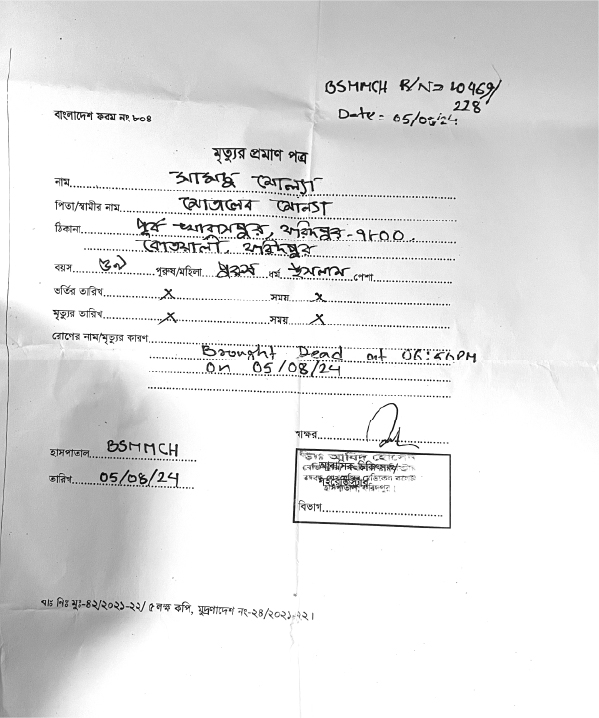 BSMMCH R/N= 10469/
228
Date = 05/08/24
বাংলাদেশ ফরম নং ৮০৪
মৃত্যুর প্রমাণ পত্র
নাম মোল্যা
পিতা/স্বামীর নাম মোতালেব মোল্যা
ঠিকানা পূর্ব ফরিদপুর-৭৮০০
কোতয়ালী, ফরিদপুর
বয়স পুরুষ/মহিলা পুরুষ ধর্ম ইসলাম পেশা
ভর্তির তারিখ x সময় x
মৃত্যুর তারিখ x সময় x
রোগের নাম/মৃত্যুর কারণ
Brought Dead at PM
on 05/08/24
স্বাক্ষর
হাসপাতাল BSMMCH
তারিখ 05/08/24
ডাঃ হোসেন
হাসপাতাল, ফরিদপুর।
বিভাগ
বাঃ নিঃ মুঃ-৪২/২০২১-২২/ ৫ লক্ষ কপি, মুদ্রণাদেশ নং-২৪/২০২১-২২।